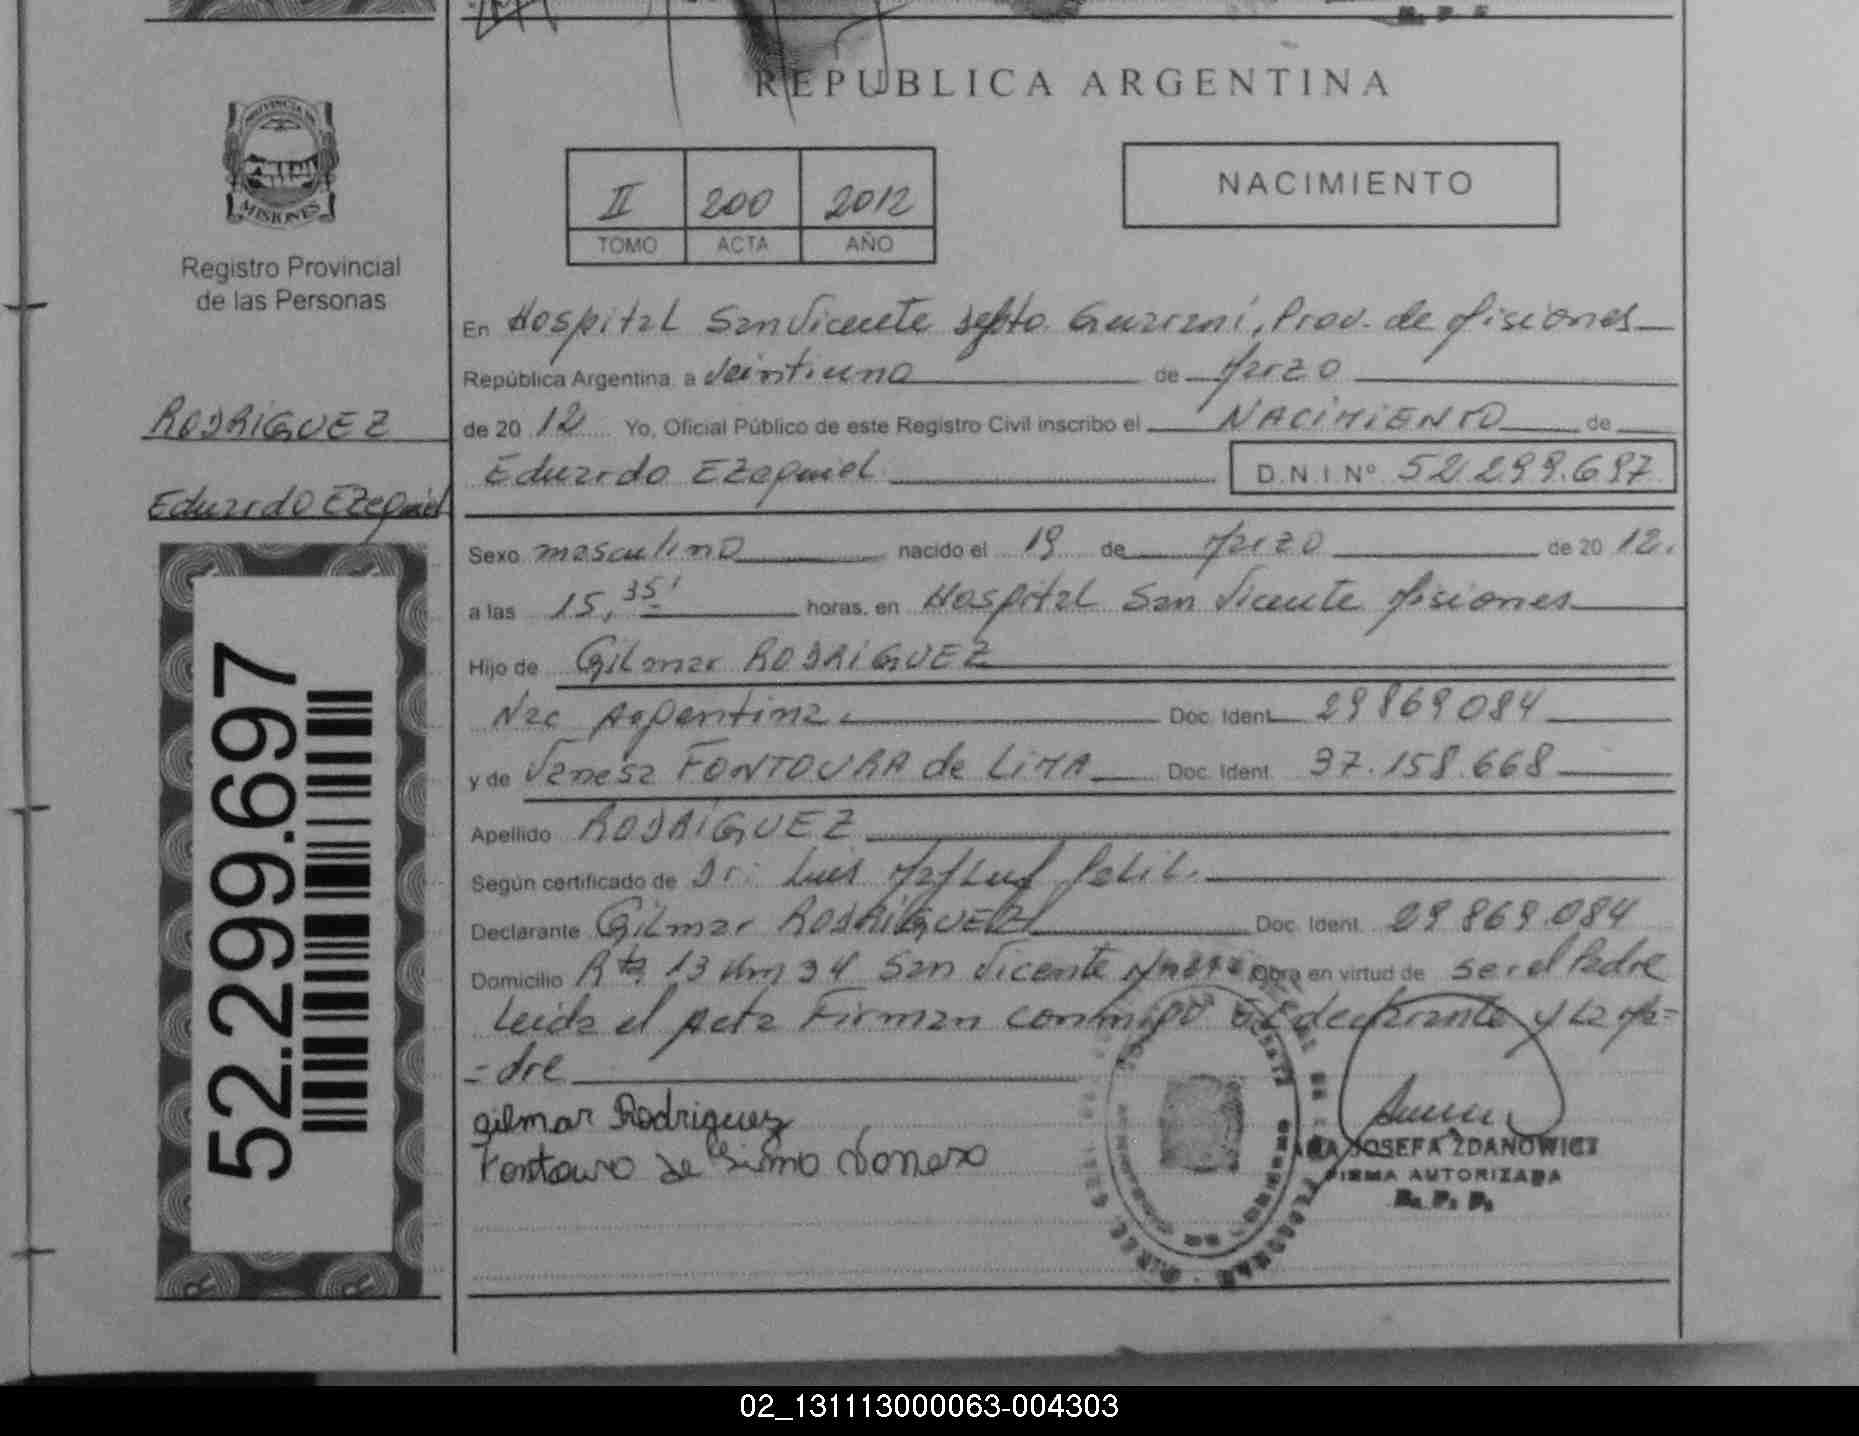 REPUBLICA ARGENTINA
PROVINCIA DE
MISIONES
Registro Provincial
de las Personas
RODRIGUEZ
Eduardo Ezequiel
52.299.697
II 200 2012
TOMO ACTA AÑO
NACIMIENTO
En Hospital San Vicente Depto. Guarani, Prov. de Misiones
República Argentina, a Veintiuno de Marzo
de 20 12 Yo, Oficial Público de este Registro Civil inscribo el NACIMIENTO de
Eduardo Ezequiel D.N.I. Nº 52.299.697
Sexo masculino nacido el 19 de Marzo de 20 12.
a las 15,35' horas, en Hospital San Vicente Misiones
Hijo de Gilmar RODRIGUEZ
Nac Argentina. Doc. Ident. 29869084
y de Vanesa FONTOURA de LIMA Doc. Ident. 37.158.668
Apellido RODRIGUEZ
Según certificado de Dr: Luis
Declarante Gilmar RODRIGUEZ Doc. Ident. 29869.084
Domicilio Rta 13 Km 34 San Vicente Mnes Obra en virtud de ser el Padre
Leida el Acta Firman conmigo el declarante y la Ma=
=dre
gilmar Rodriguez
Fontoura de Lima Vanesa
ANA JOSEFA ZDANOWICZ
FIRMA AUTORIZADA
R. P. P.
02_131113000063-004303